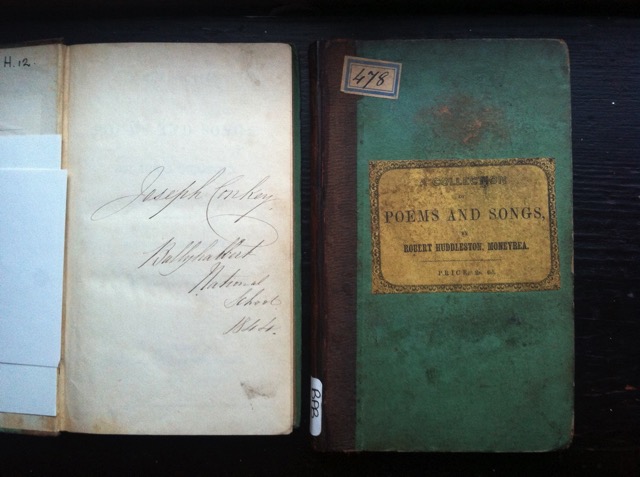 H.12.
Joseph Conkey
Ballyhalbert
National
School
1844.
478
A COLLECTION
OF
POEMS AND SONGS,
BY
ROBERT HUDDLESTON, MONEYREA.
PRICE,